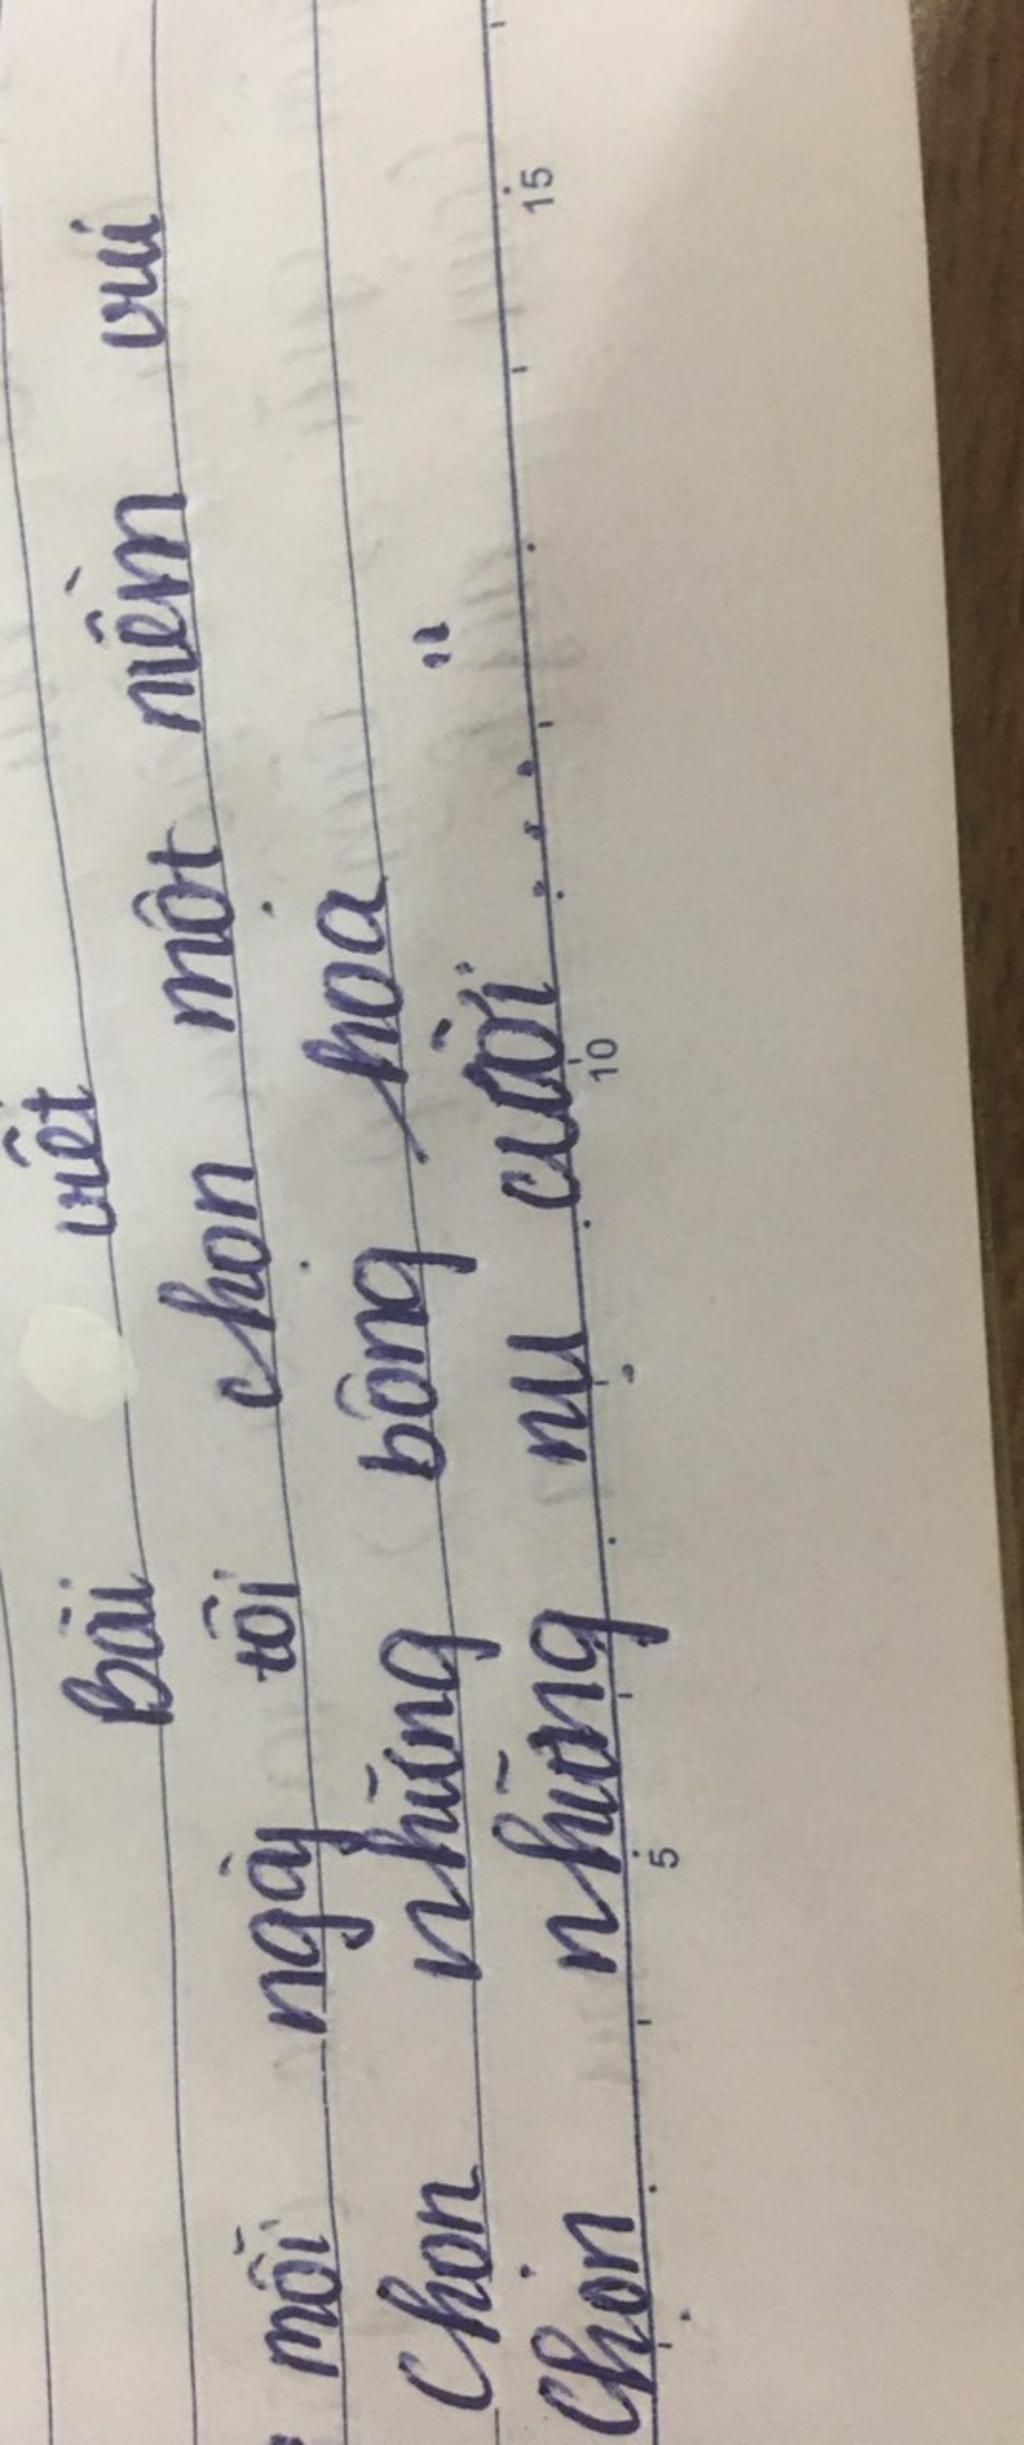 Bài viết
" mỗi ngày tôi chọn một niềm vui
Chọn những bông hoa
Chọn những nụ cười ... "
5 10 15